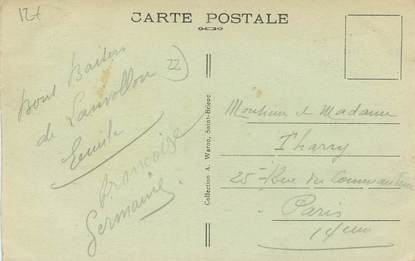 12f
CARTE POSTALE
22
Bons Baisers
de Lanvollon
Emile
Françoise
Germaine
Collection A. Waron, Saint-Brieuc
Monsieur et Madame
Tharry
25 Rue du Commandeur
Paris
14ème